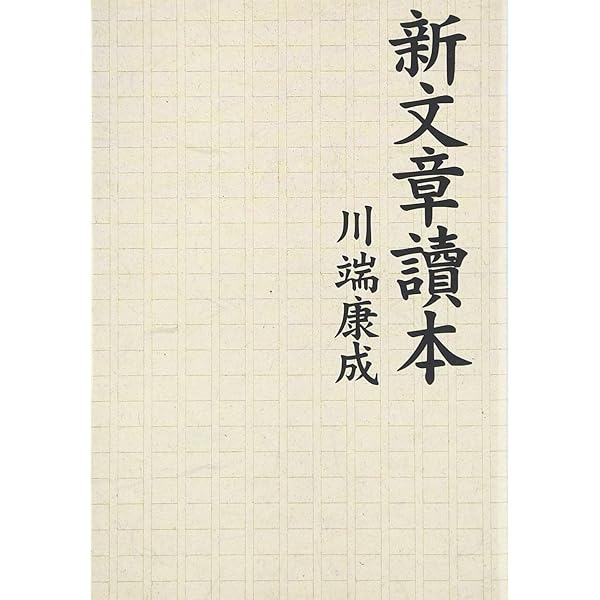 新文章讀本
川端康成